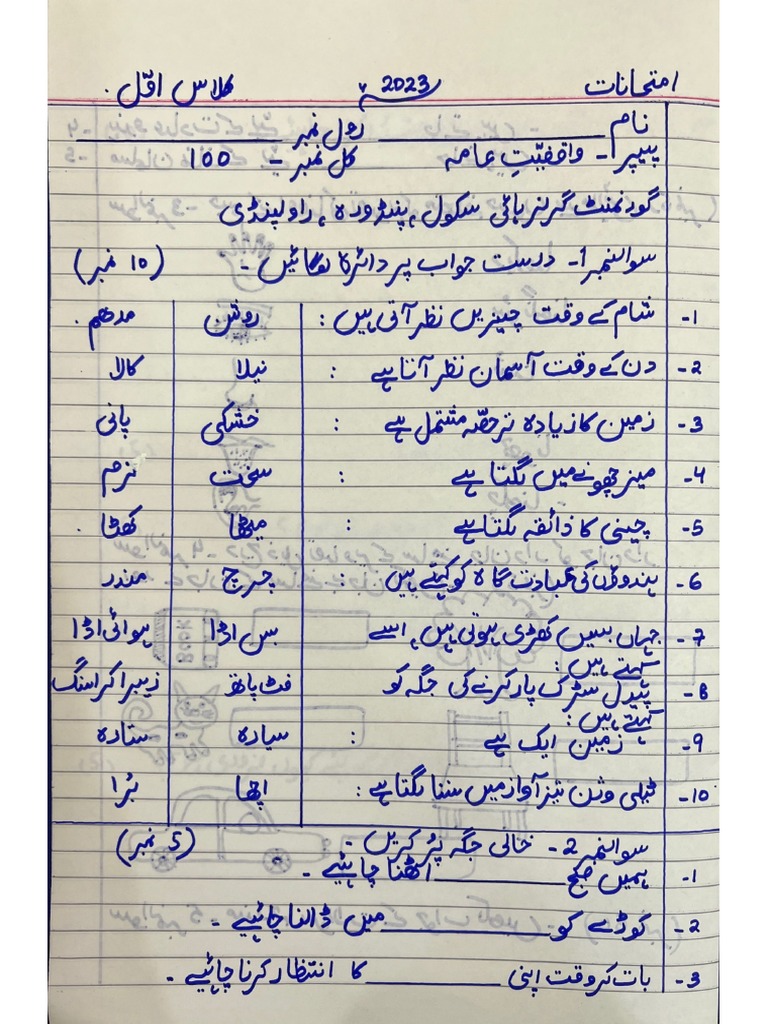 امتحانات 2023ء کلاس اوّل۔
نام ____________ رول نمبر ____________
پیپر 1- واقفیّتِ عامہ کل نمبر - 100
گورنمنٹ گرلز ہائی سکول، پنڈورہ، راولپنڈی
سوالنمبر 1- درست جواب پر دائرہ لگائیں - (10 نمبر)
1- شام کے وقت چیزیں نظر آتی ہیں : روشن مدھم .
2- دن کے وقت آسمان نظر آتا ہے : نیلا کالا
3- زمین کا زیادہ تر حصّہ مشتمل ہے : خشکی پانی
4- میز چھونے میں لگتا ہے : سخت نرم
5- چینی کا ذائقہ لگتا ہے : میٹھا کھٹا .
6- ہندوؤں کی عبادت گاہ کو کہتے ہیں : چرچ مندر
7- جہاں بسیں کھڑی ہوتی ہیں، اسے بس اڈا ہوائی اڈا
کہتے ہیں :
8- پیدل سڑک پار کرنے کی جگہ کو فٹ پاتھ زیبرا کراسنگ
کہتے ہیں :
9- زمین ایک ہے : سیارہ ستارہ
10- ٹیلی وژن تیز آواز میں سننا لگتا ہے : اچھا بُرا
سوالنمبر 2- خالی جگہ پُر کریں - (5 نمبر)
1- ہمیں صبح ____________ اٹھنا چاہئیے -
2- کوڑے کو ____________ میں ڈالنا چاہئیے -
3- بات کر وقت اپنی ____________ کا انتظار کرنا چاہئیے -